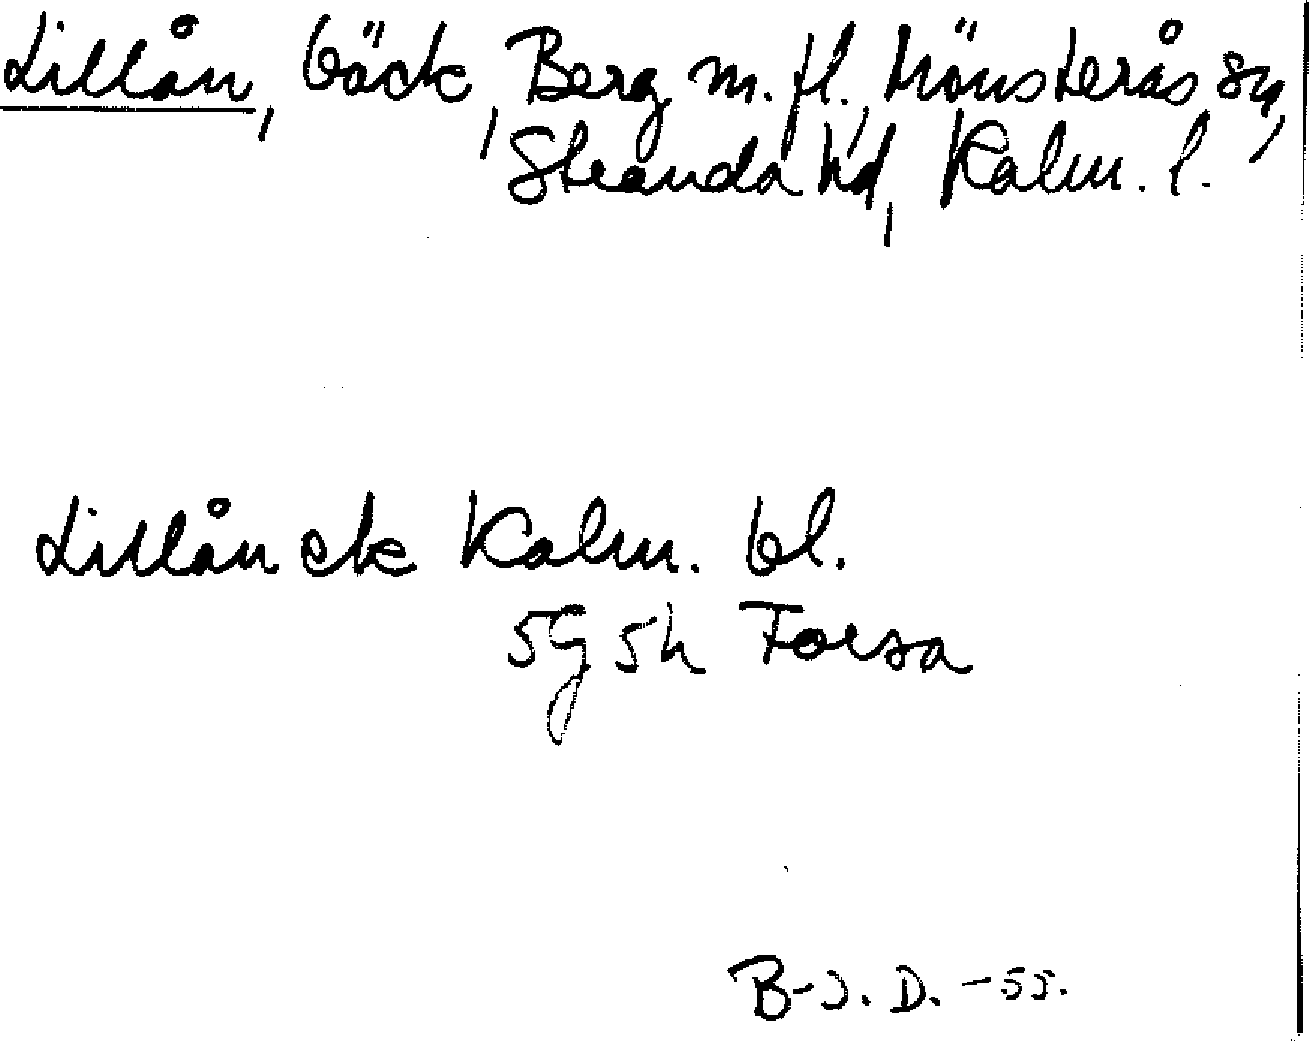 Lillån, bäck, Berg m. fl., Mönsterås sn,
Stranda hd, Kalm. l.
Lillån ek Kalm. bl.
5G 5h Forsa
B-J. D. -55.